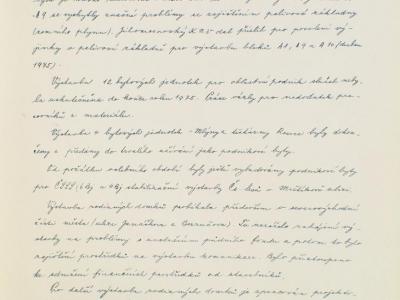 A9 se vyskytly značné problémy se zajištěním palivové základny
(zemního plynu). Jihomoravský KNV dal příslib pro povolení vý-
jimky z palivové základny pro výstavbu bloků A8, A9 a A10 (duben
1975).
Výstavba 12 bytových jednotek pro okresní podnik služeb neby-
la uskutečněna do konce roku 1975. Práce vázly pro nedostatek pra-
covníků a materiálu.
Výstavba 4 bytových jednotek - byly dokon-
čeny a předány do trvalého užívání jako podnikové byty.
Od počátku volebního období byly ještě vybudovány podnikové byty
pro ČSSS (6 bj a 4 bj stabilizační výstavby v ulici.
Výstavba rodinných domků probíhala především v severovýchodní
části města (ulice Janáčkova a Tu naráželo zahájení vý-
stavby na problémy s půdního fondu a potom to bylo
zajištění prostředků na výstavbu komunikace. Bylo přistoupeno
ke sdružení finančních prostředků od stavebníků.
Pro další výstavbu rodinných domků je zpracován projekt.